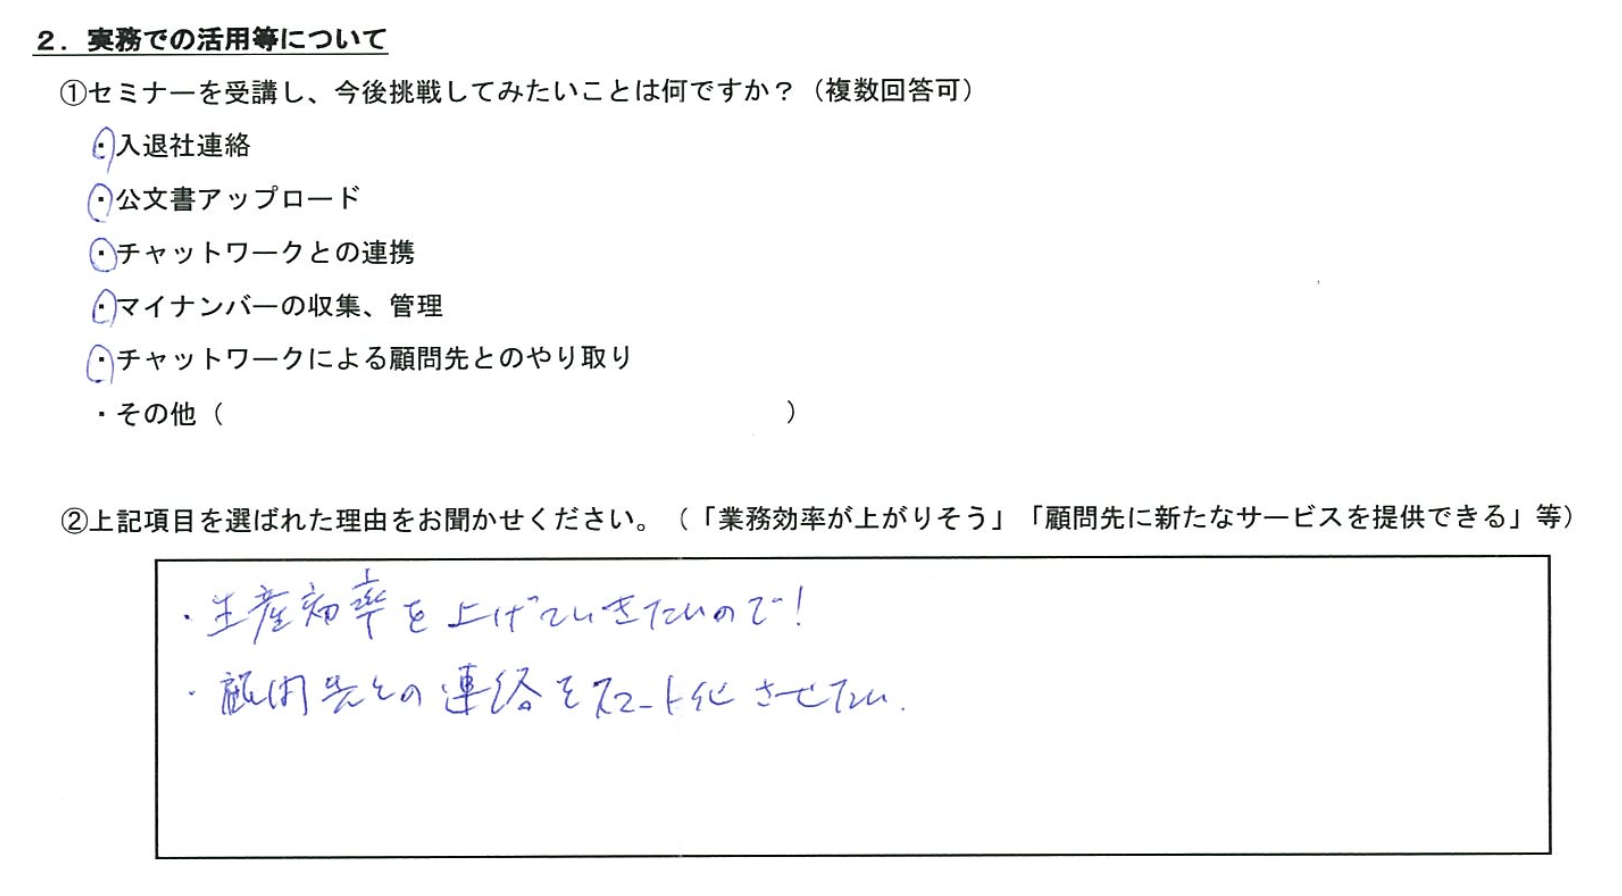 ２．実務での活用等について
①セミナーを受講し、今後挑戦してみたいことは何ですか？（複数回答可）
・入退社連絡
・公文書アップロード
・チャットワークとの連携
・マイナンバーの収集、管理
・チャットワークによる顧問先とのやり取り
・その他（　　　　　　　　　　　　　　　　　　　　）
②上記項目を選ばれた理由をお聞かせください。（「業務効率が上がりそう」「顧問先に新たなサービスを提供できる」等）
・生産効率を上げていきたいので！
・顧問先との連絡をスマート化させたい.